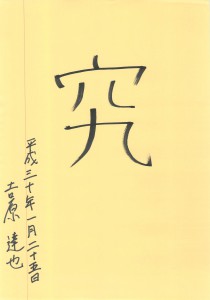 究
平成三十年一月二十五日
吉原 達也